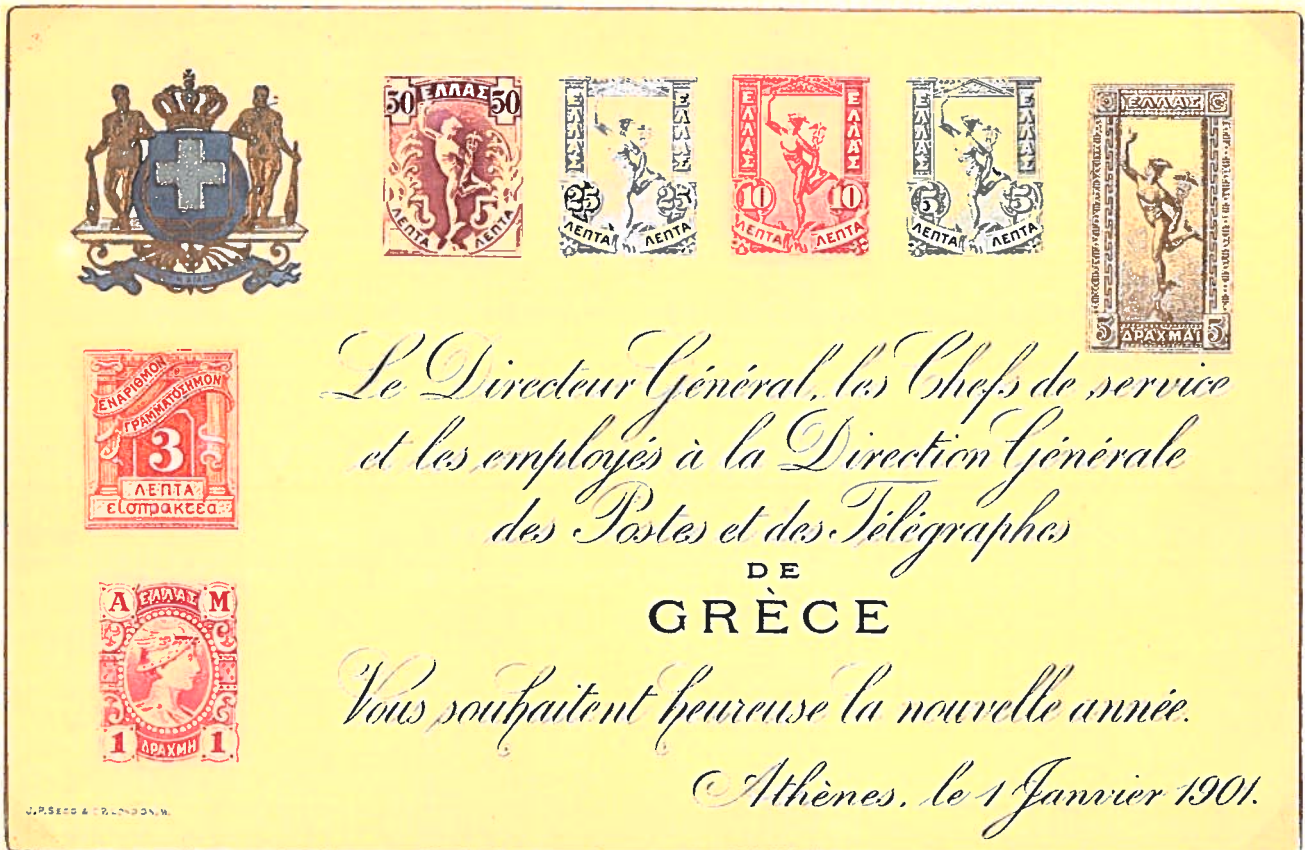 50 ΕΛΛΑΣ 50
ΛΕΠΤΑ ΛΕΠΤΑ
ΕΛΛΑΣ ΕΛΛΑΣ
25 25
ΛΕΠΤΑ ΛΕΠΤΑ
ΕΛΛΑΣ ΕΛΛΑΣ
10 10
ΛΕΠΤΑ ΛΕΠΤΑ
ΕΛΛΑΣ ΕΛΛΑΣ
5 5
ΛΕΠΤΑ ΛΕΠΤΑ
ΕΛΛΑΣ
5 ΔΡΑΧΜΑΙ 5
ΕΝΑΡΙΘΜΟΝ
ΓΡΑΜΜΑΤΟΣΗΜΟΝ
3
ΛΕΠΤΑ
εἰσπρακτέα
Α ΕΛΛΑΣ Μ
1 ΔΡΑΧΜΗ 1
Le Directeur Général, les Chefs de service
et les employés à la Direction Générale
des Postes et des Télégraphes
DE
GRÈCE
Vous souhaitent heureuse la nouvelle année.
Athènes, le 1 Janvier 1901.